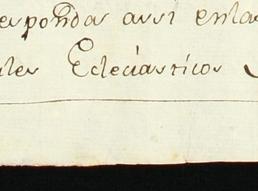 responda assi enla
ales Ecleciasticos